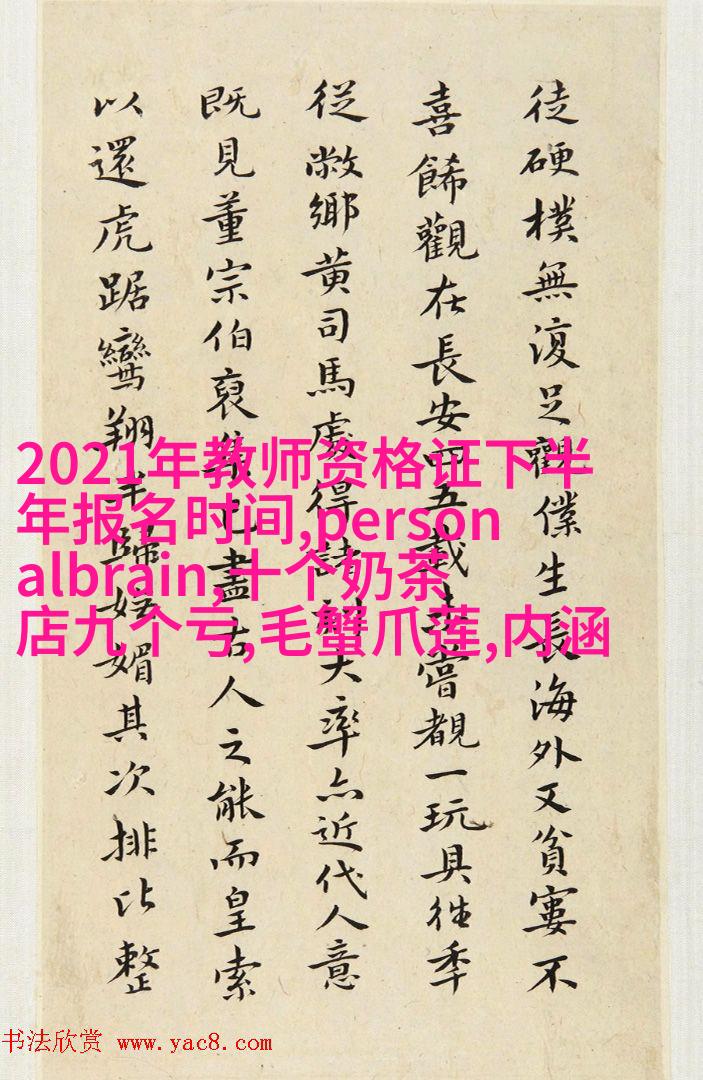 徒硬樸無復足觀僕生長海外又貧寠不
喜餙觀在長安四五載未嘗覩一玩具往季
從敝鄉黄司馬處得諸大率亦近代人意
既見董宗伯裒盡古人之能而皇索
以還虎踞鸞翔歸媚其次排比整
2021年教师资格证下半
年报名时间,person
albrain,十个奶茶
店九个亏,毛蟹爪莲,内涵
书法欣赏 www.yac8.com